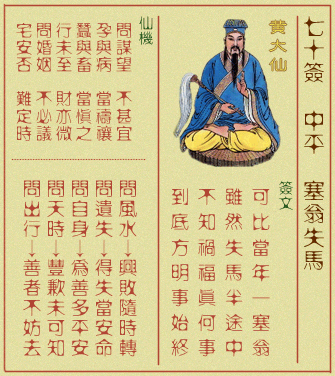 七十簽 中平 塞翁失馬
簽文
可比當年一塞翁
雖然失馬半途中
不知禍福眞何事
到底方明事始終
黃大仙
仙機
問謀望 不甚宜
孕與病 當禱禳
蠶與畜 當慎之
行未至 財亦微
問婚姻 不必議
宅安否 難定時
問風水→興敗隨時轉
問遺失→得失當安命
問自身→為善多平安
問天時→豐歉未可知
問出行→善者不妨去